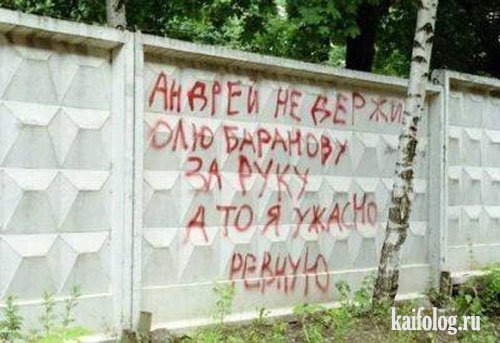 АНДРЕЙ НЕ ДЕРЖИ
ОЛЮ БАРАНОВУ
ЗА РУКУ
А ТО Я УЖАСНО
РЕВНУЮ
kaifolog.ru